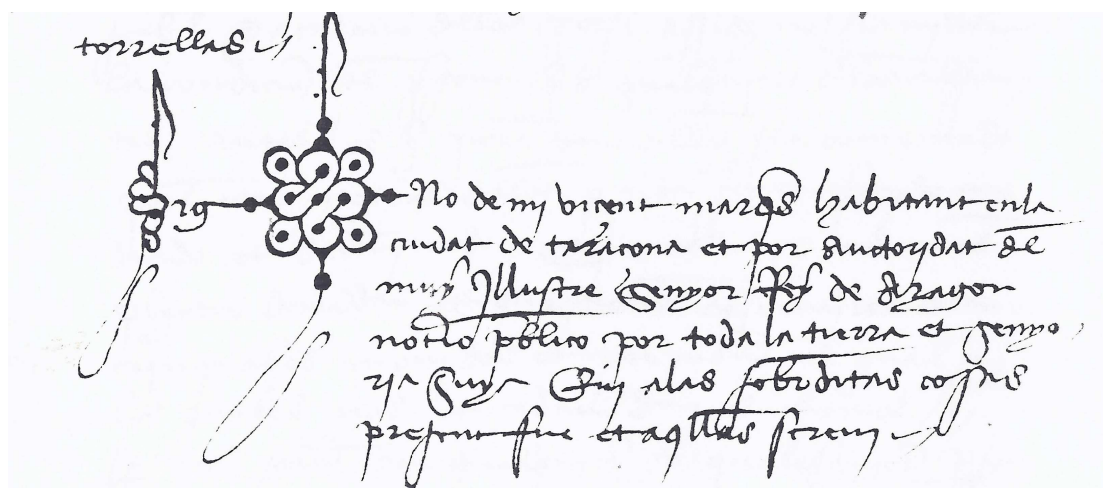 torrellas
Sig No de mi vicent marqs habitant enla
ciudat de taracona et por auctoridat del
muy Illustre Senyor Rey de Aragon
notio pblico por toda la tierra et senyo
ria suya Qui alas sobrditas cosas
present fue et aqllas screui